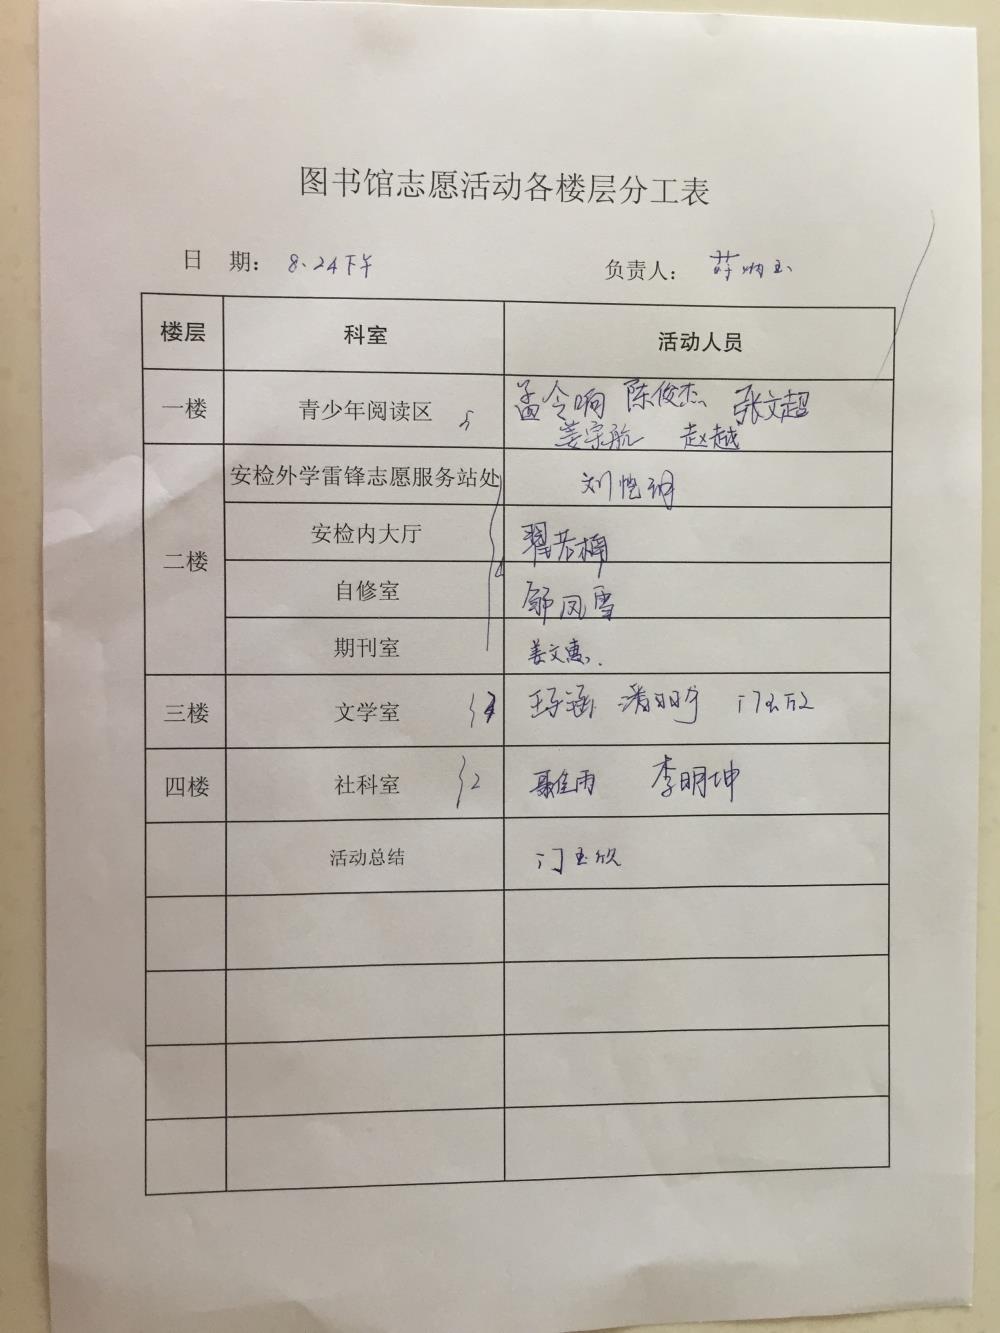 图书馆志愿活动各楼层分工表
日 期： 8.24下午 负责人：
楼层 科室 活动人员
一楼 青少年阅读区 5 孟令响 陈俊杰 张文超
姜宗航 赵越
二楼
安检外学雷锋志愿服务站处 刘恺玥
安检内大厅 4 翟若楠
自修室 邹凤雪
期刊室 姜文惠
三楼 文学室 王子涵 门玉欣
四楼 社科室 2 聂佳雨 李明坤
活动总结 门玉欣